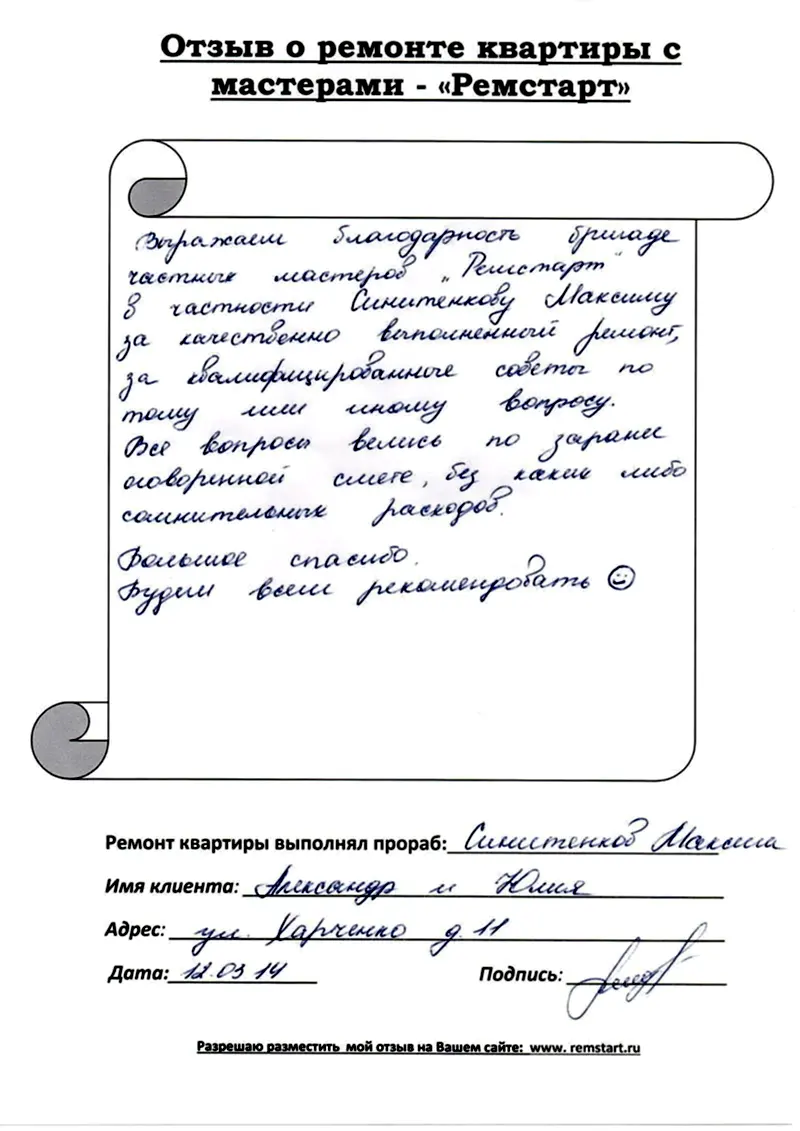 Отзыв о ремонте квартиры с
мастерами - «Ремстарт»
Выражаем благодарность бригаде
частных мастеров „Ремстарт“
в частности Синитенкову Максиму
за качественно выполненный ремонт,
за квалифицированные советы по
тому или иному вопросу.
Все вопросы велись по заранее
оговоренной смете, без каких либо
сомнительных расходов.
Большое спасибо.
Будем всем рекомендовать ☺
Ремонт квартиры выполнял прораб: Синитенков Максим
Имя клиента: Александр и Юлия
Адрес: ул. Харченко д. 11
Дата: 12.03 14 Подпись:
Разрешаю разместить мой отзыв на Вашем сайте: www. remstart.ru